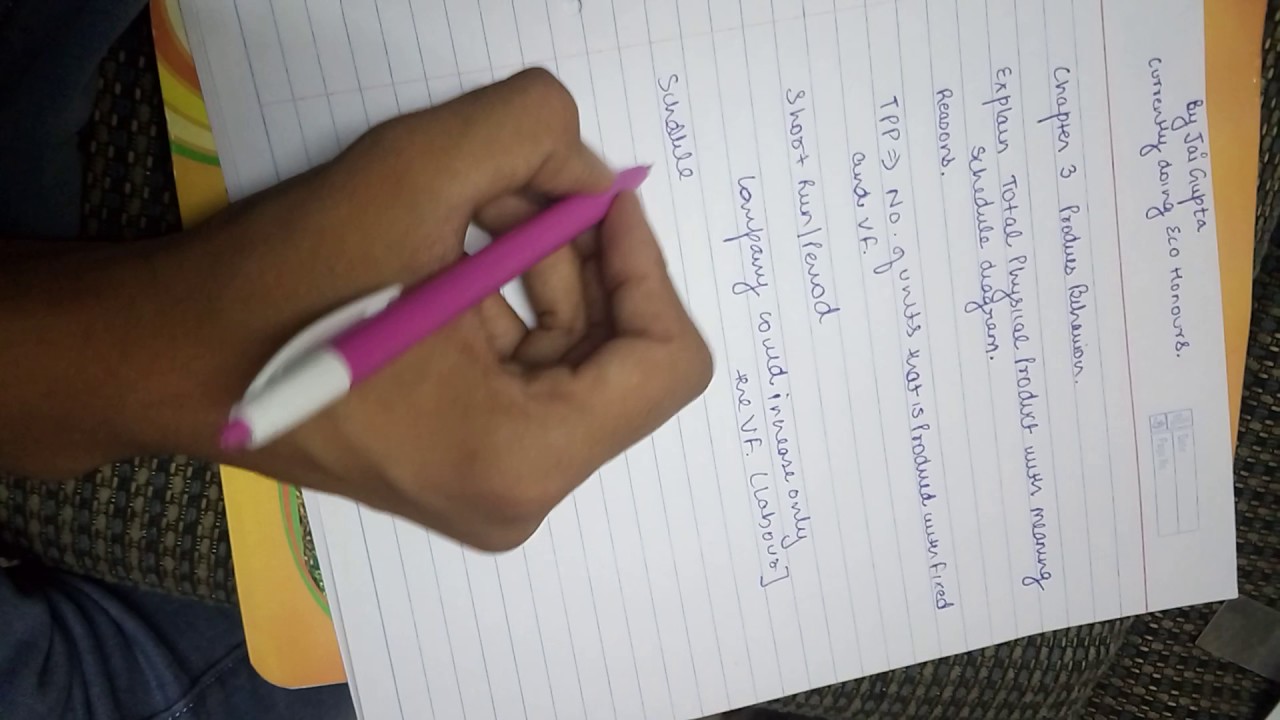 By Jai Gupta
currently doing Eco Honours.
Chapter 3 Produes Behaviour.
Explain Total Physical Product with meaning
schedule diagram.
Reasons.
TPP => No. of units that is Produced with fixed
and VF.
Short Run/Period
Company could increase only
the VF. (labour]